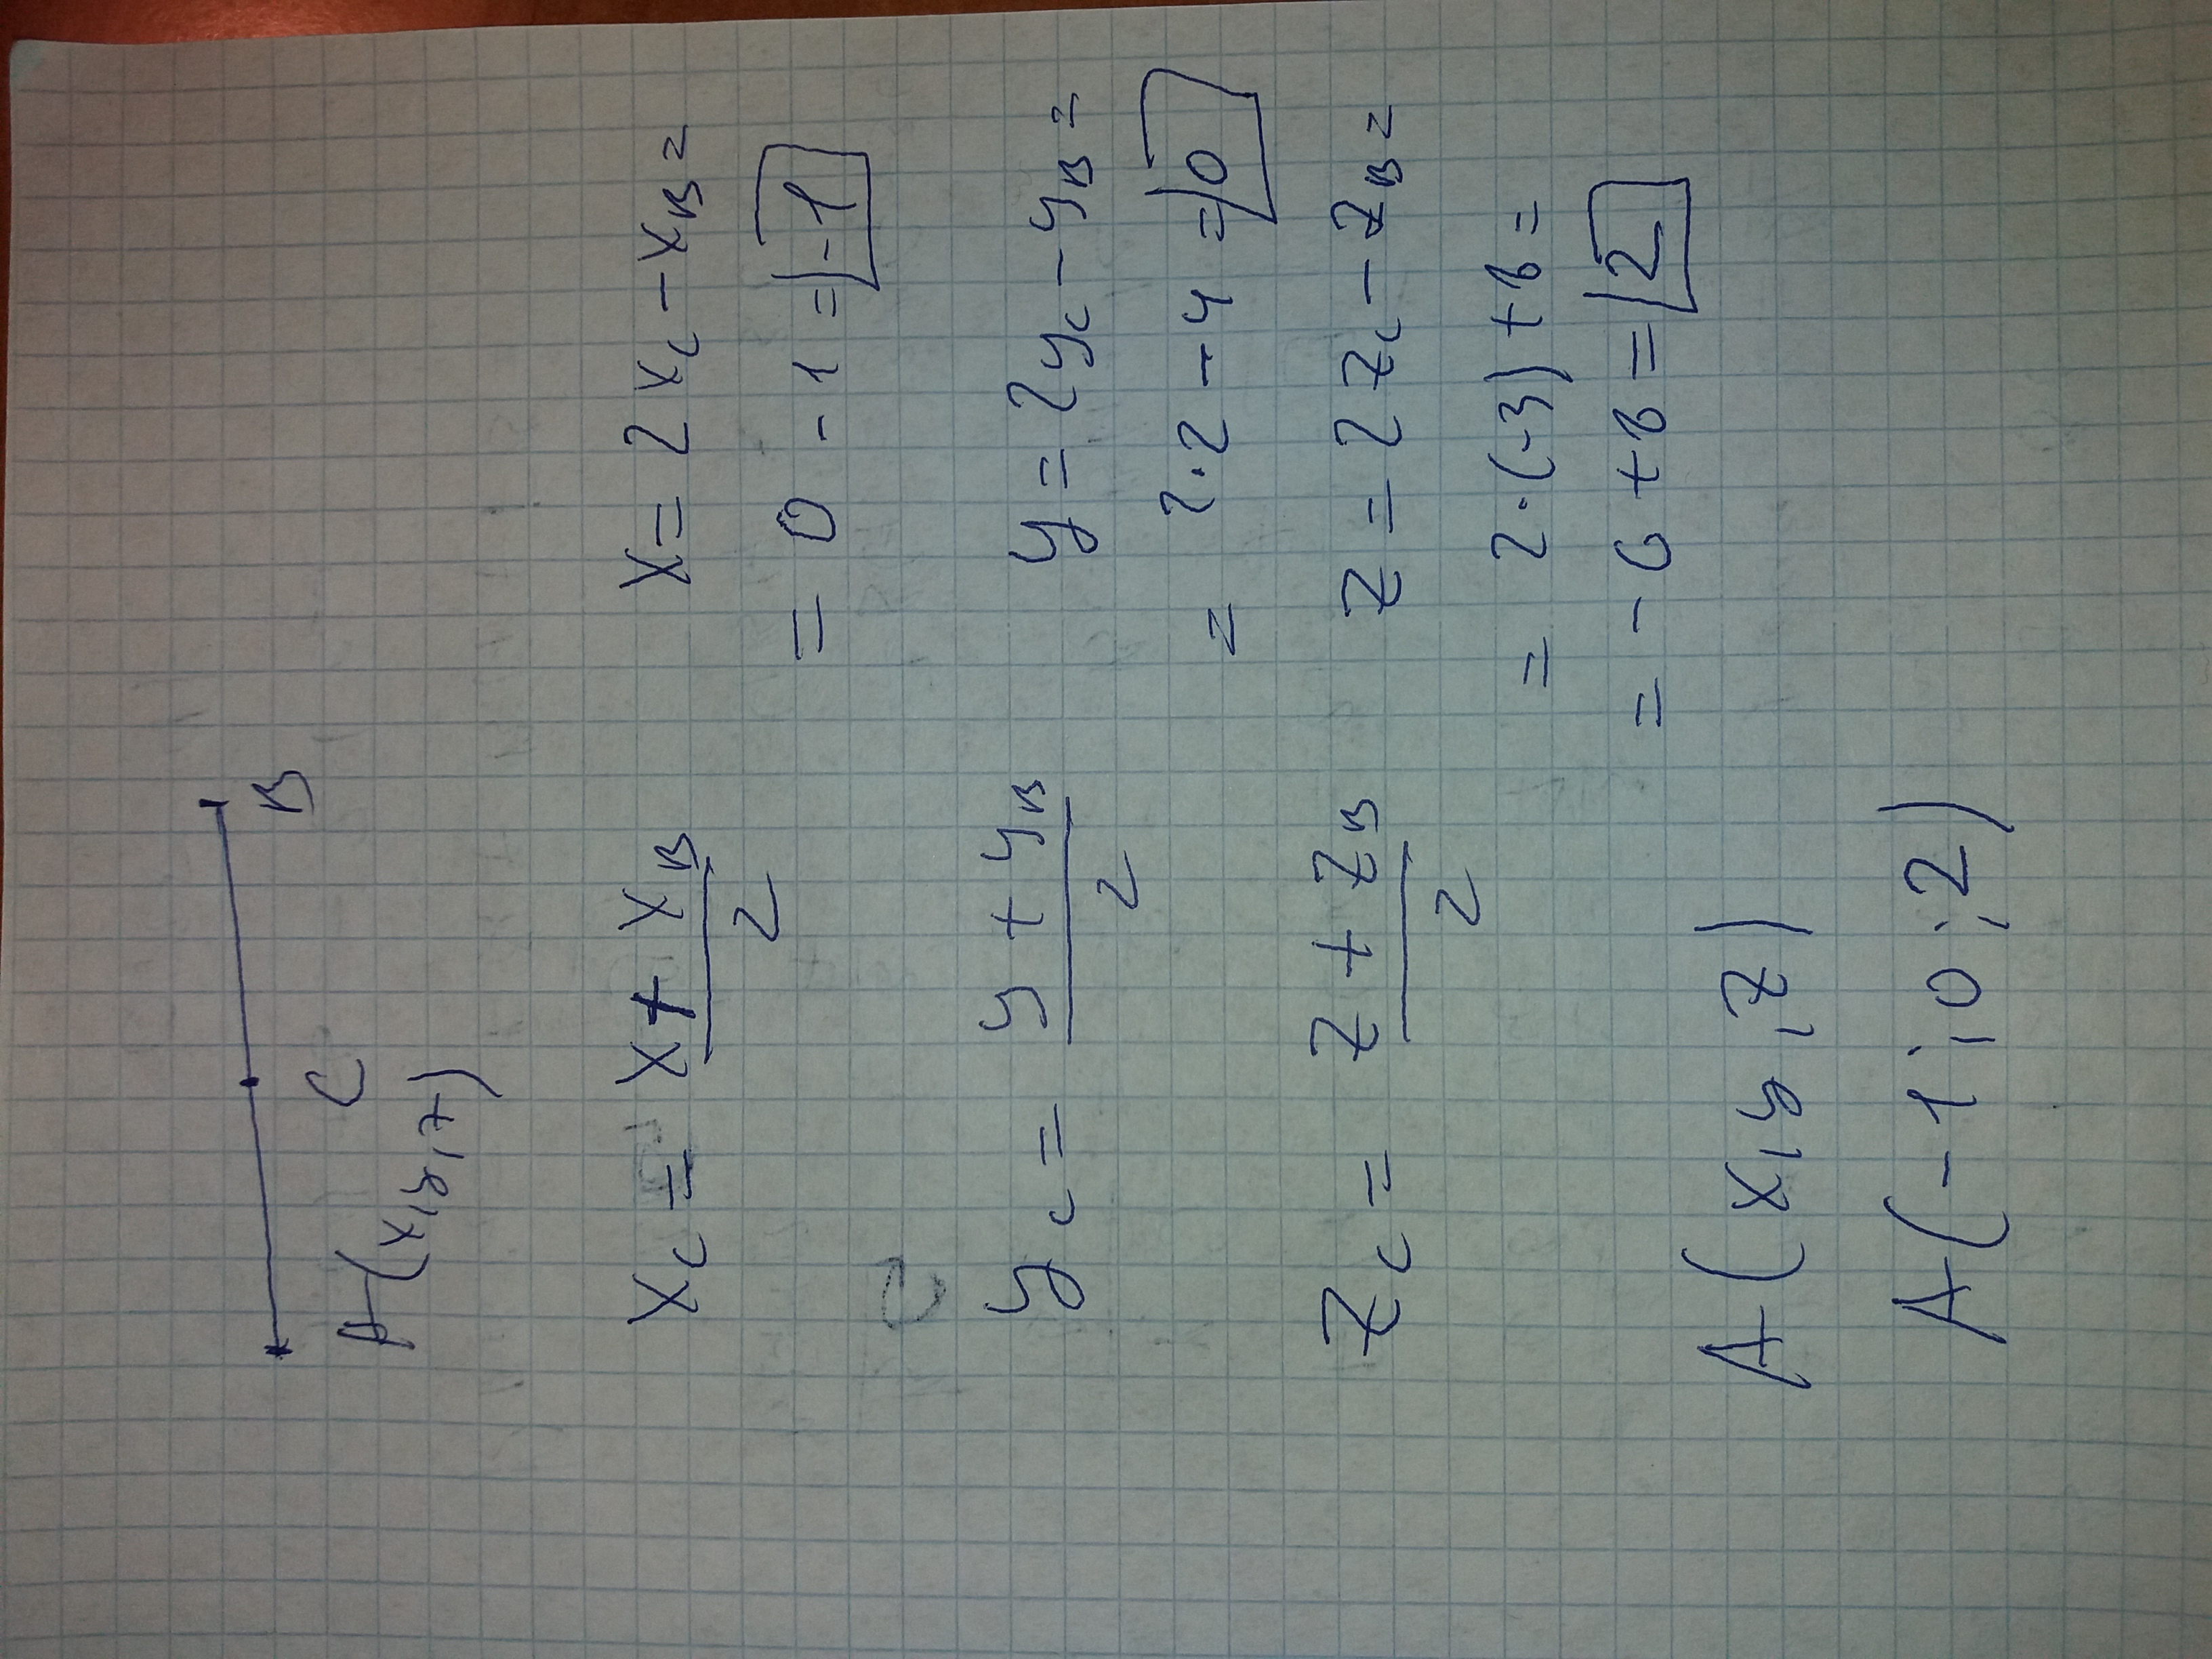 B
C
A(x,y,z)
x_c = (x + x_B)/2
x = 2x_c - x_B =
= 0 - 1 = -1
y_c = (y + y_B)/2
y = 2y_c - y_B =
= 2·2 - 4 = 0
z_c = (z + z_B)/2
z = 2z_c - z_B =
= 2·(-3) + 8 =
= -6 + 8 = 2
A(x,y,z)
A(-1;0;2)